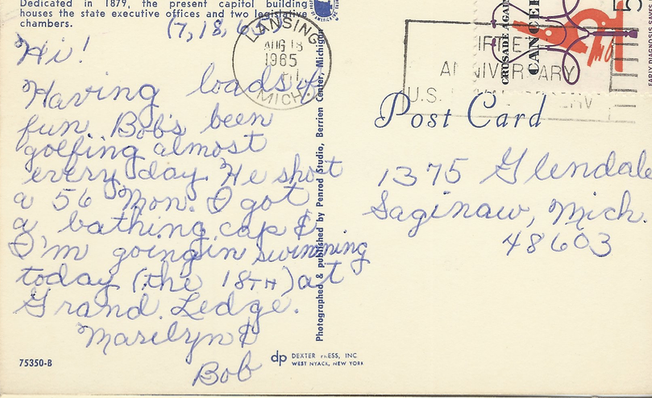 Dedicated in 1879, the present capitol building
houses the state executive offices and two legislative
chambers.
(7, 18, 65)
Hi!
Having loads of
fun. Bob's been
golfing almost
every day. He shot
a 56 Mon. I got
a bathing cap &
I'm going in swimming
today (the 18TH) at
Grand Ledge.
Marilyn &
Bob
75350-B
Photographed & published by Penrod Studio, Berrien Center, Michigan
dp DEXTER PRESS, INC.
WEST NYACK, NEW YORK
LANSING
AUG 18
1965
MICH.
ANNIVERSARY
U.S.
CRUSADE AGAINST
CANCER
EARLY DIAGNOSIS SAVES
5
Post Card
1375 Glendale
Saginaw, Mich.
48603